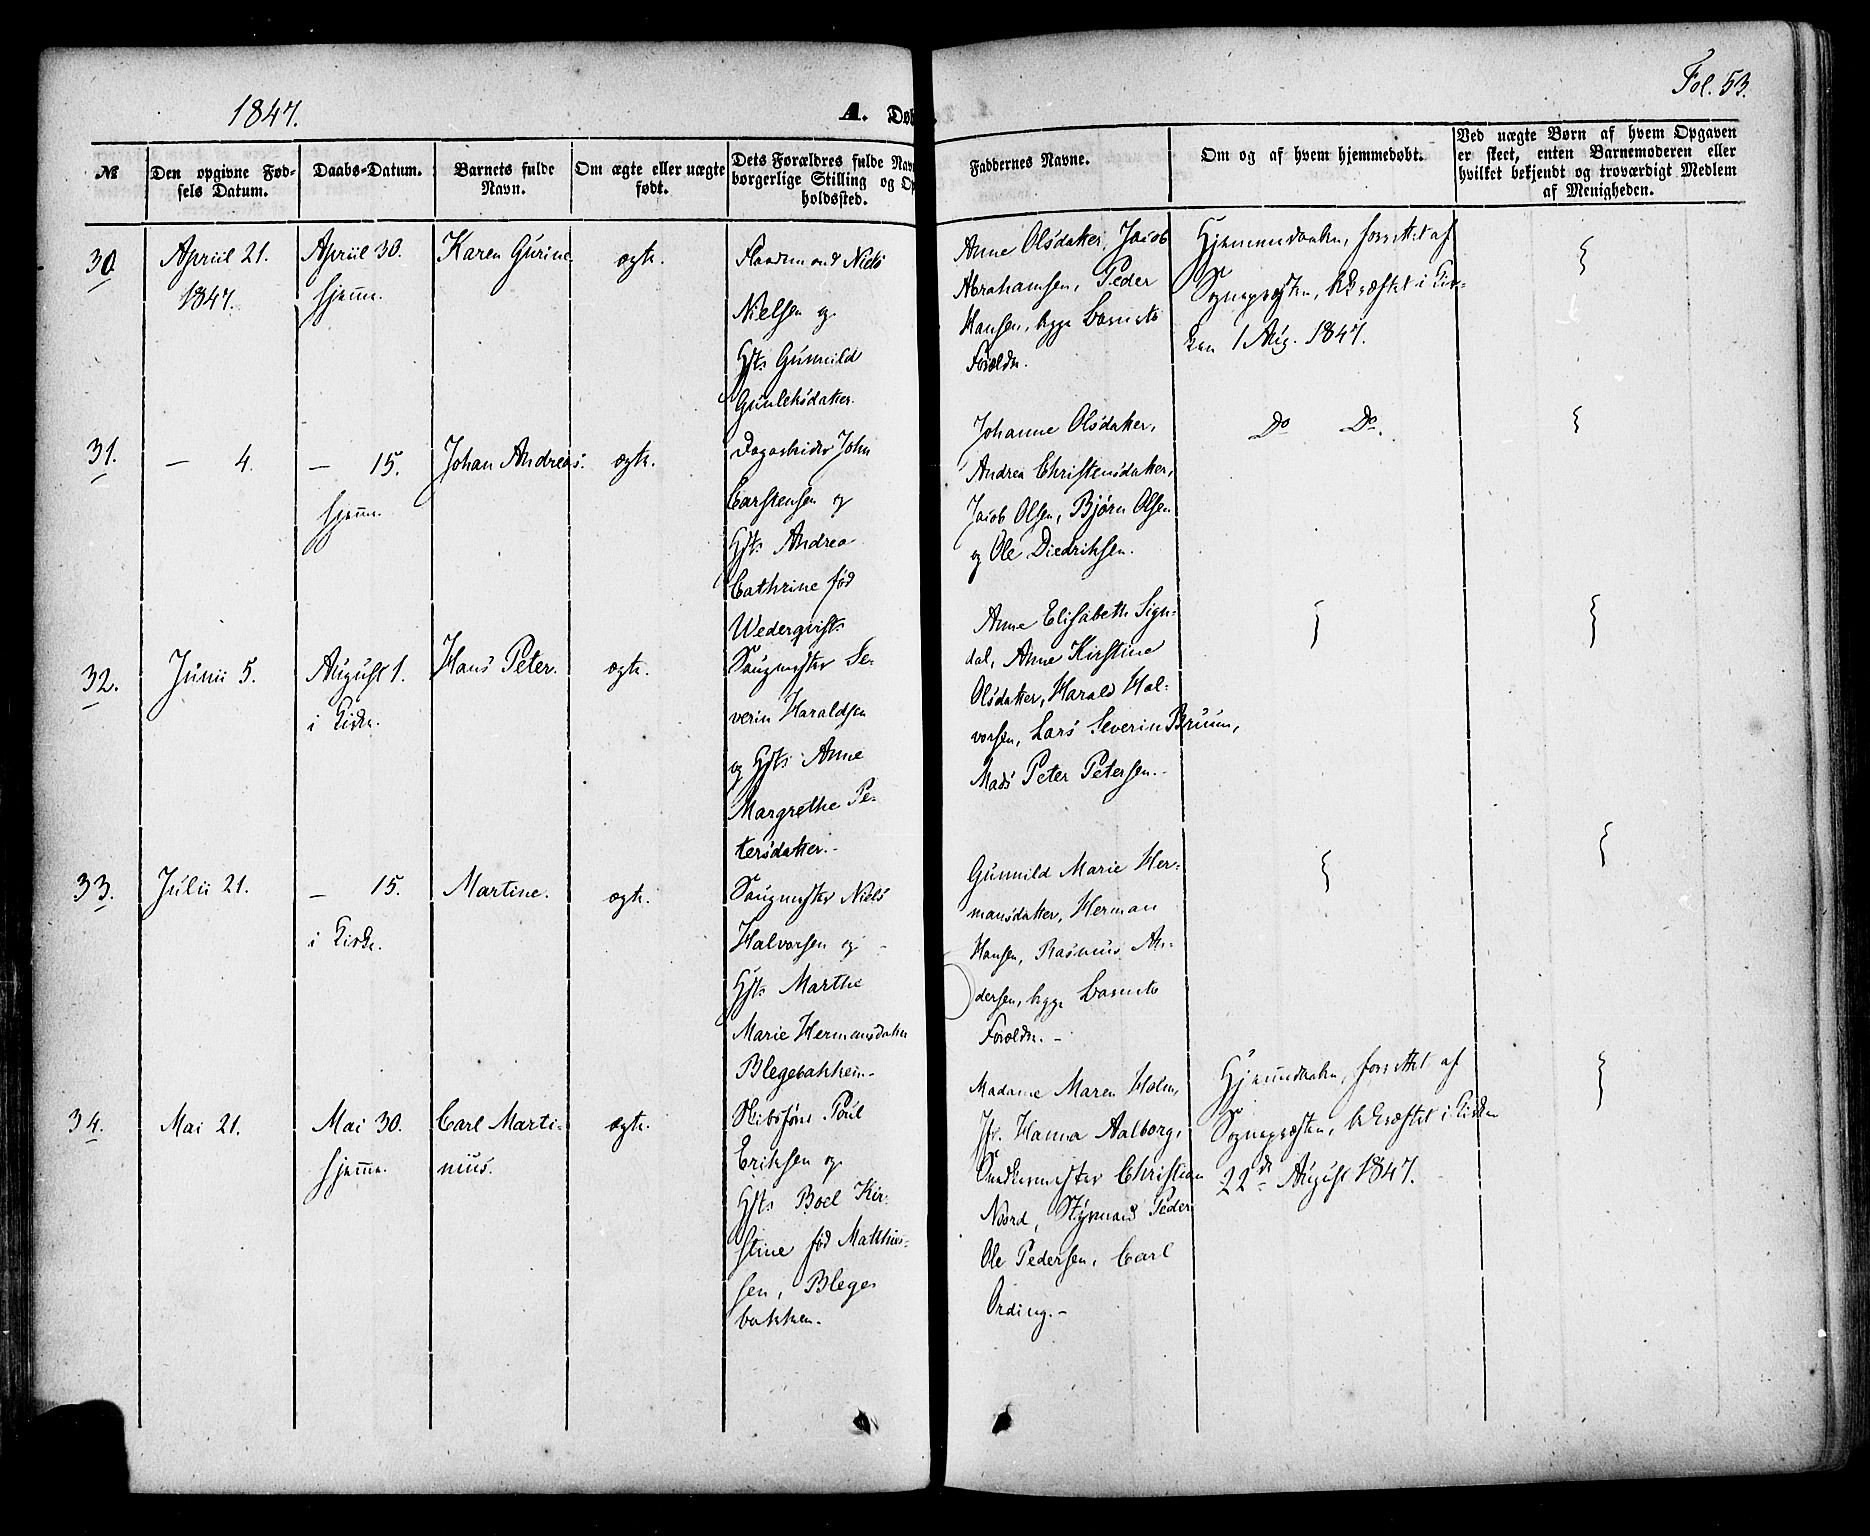 1847.
A. Døb
Fol. 53.
№
Den opgivne Fød-
sels Datum.
Daabs-Datum.
Barnets fulde
Navn.
Om ægte eller uægte
født.
Dets Forældres fulde Nav
borgerlige Stilling og Op
holdssted.
Faddernes Navne.
Om og af hvem hjemmedøbt.
Ved uægte Børn af hvem Opgaven
er skeet, enten Barnemoderen eller
hvilket bekjendt og troværdigt Medlem
af Menigheden.
30.
Apriil 21.
1847.
Apriil 30.
hjemme.
Karen Gurine
ægte.
Niels
Nielsen og
Hst: Gunnild
Gunleksdatter.
Anne Olsdatter, Jacob
Abrahamsen, Peder
Hansen, begge Barnets
Forældre.
Hjemmedaaben, forrettet af
Sognepresten, bekræftet i Kir-
ken 1 Aug. 1847.
31.
— 4.
— 15.
hjemme.
Johan Andreas.
ægte.
Dagarbeider John
Carstensen og
Hst: Andrea
Cathrine fød
Wederqvist:
Johanne Olsdatter,
Andrea Christensdatter,
Jacob Olsen, Bjørn Olsen
og Ole Diedriksen.
Do Do.
32.
Junii 5.
August 1.
i Kirken.
Hans Peter.
ægte.
Saugmester Se-
verin Haraldsen
og Hst: Anne
Margrethe Pe-
tersdatter.-
Anne Elisabeth Sign-
dal, Anne Kirstine
Olsdatter, Harald Hal-
vorsen, Lars Severin Bruun,
Mads Peter Petersen.-
33.
Julii 21.
— 15.
i Kirken.
Martine.
ægte.
Saugmester Niels
Halvorsen og
Hst: Marthe
Marie Hermansdatter
Blegebakken.-
Gunnild Marie Her-
mansdatter, Herman
Hansen, Rasmus An-
dersen, begge Barnets
Forældre.-
34.
Mai 21.
Mai 30.
hjemme.
Carl Marti-
nius.
ægte.
Skibsfører Poul
Eriksen og
Hst: Boel Kir-
stine fød Matthies-
sen, Blege-
bakken.
Madame Maren Holm,
Jfr. Hanna Aalborg,
Snedkermester Christian
Noord, Styrmand Peder
Ole Pedersen, Carl
Ording.-
Hjemmedaaben, forrettet af
Sognepresten, bekræftet i Kirken
22de August 1847.